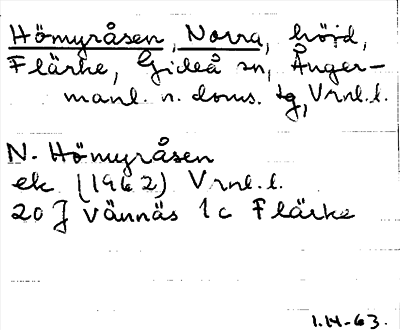 Hömyråsen, Norra, höjd,
Flärke, Gideå sn, Ånger-
manl. n. doms. tg, Vrnl.l.
N. Hömyråsen
ek (1962) Vrnl.l.
20 J Vännäs 1c Flärke
63.